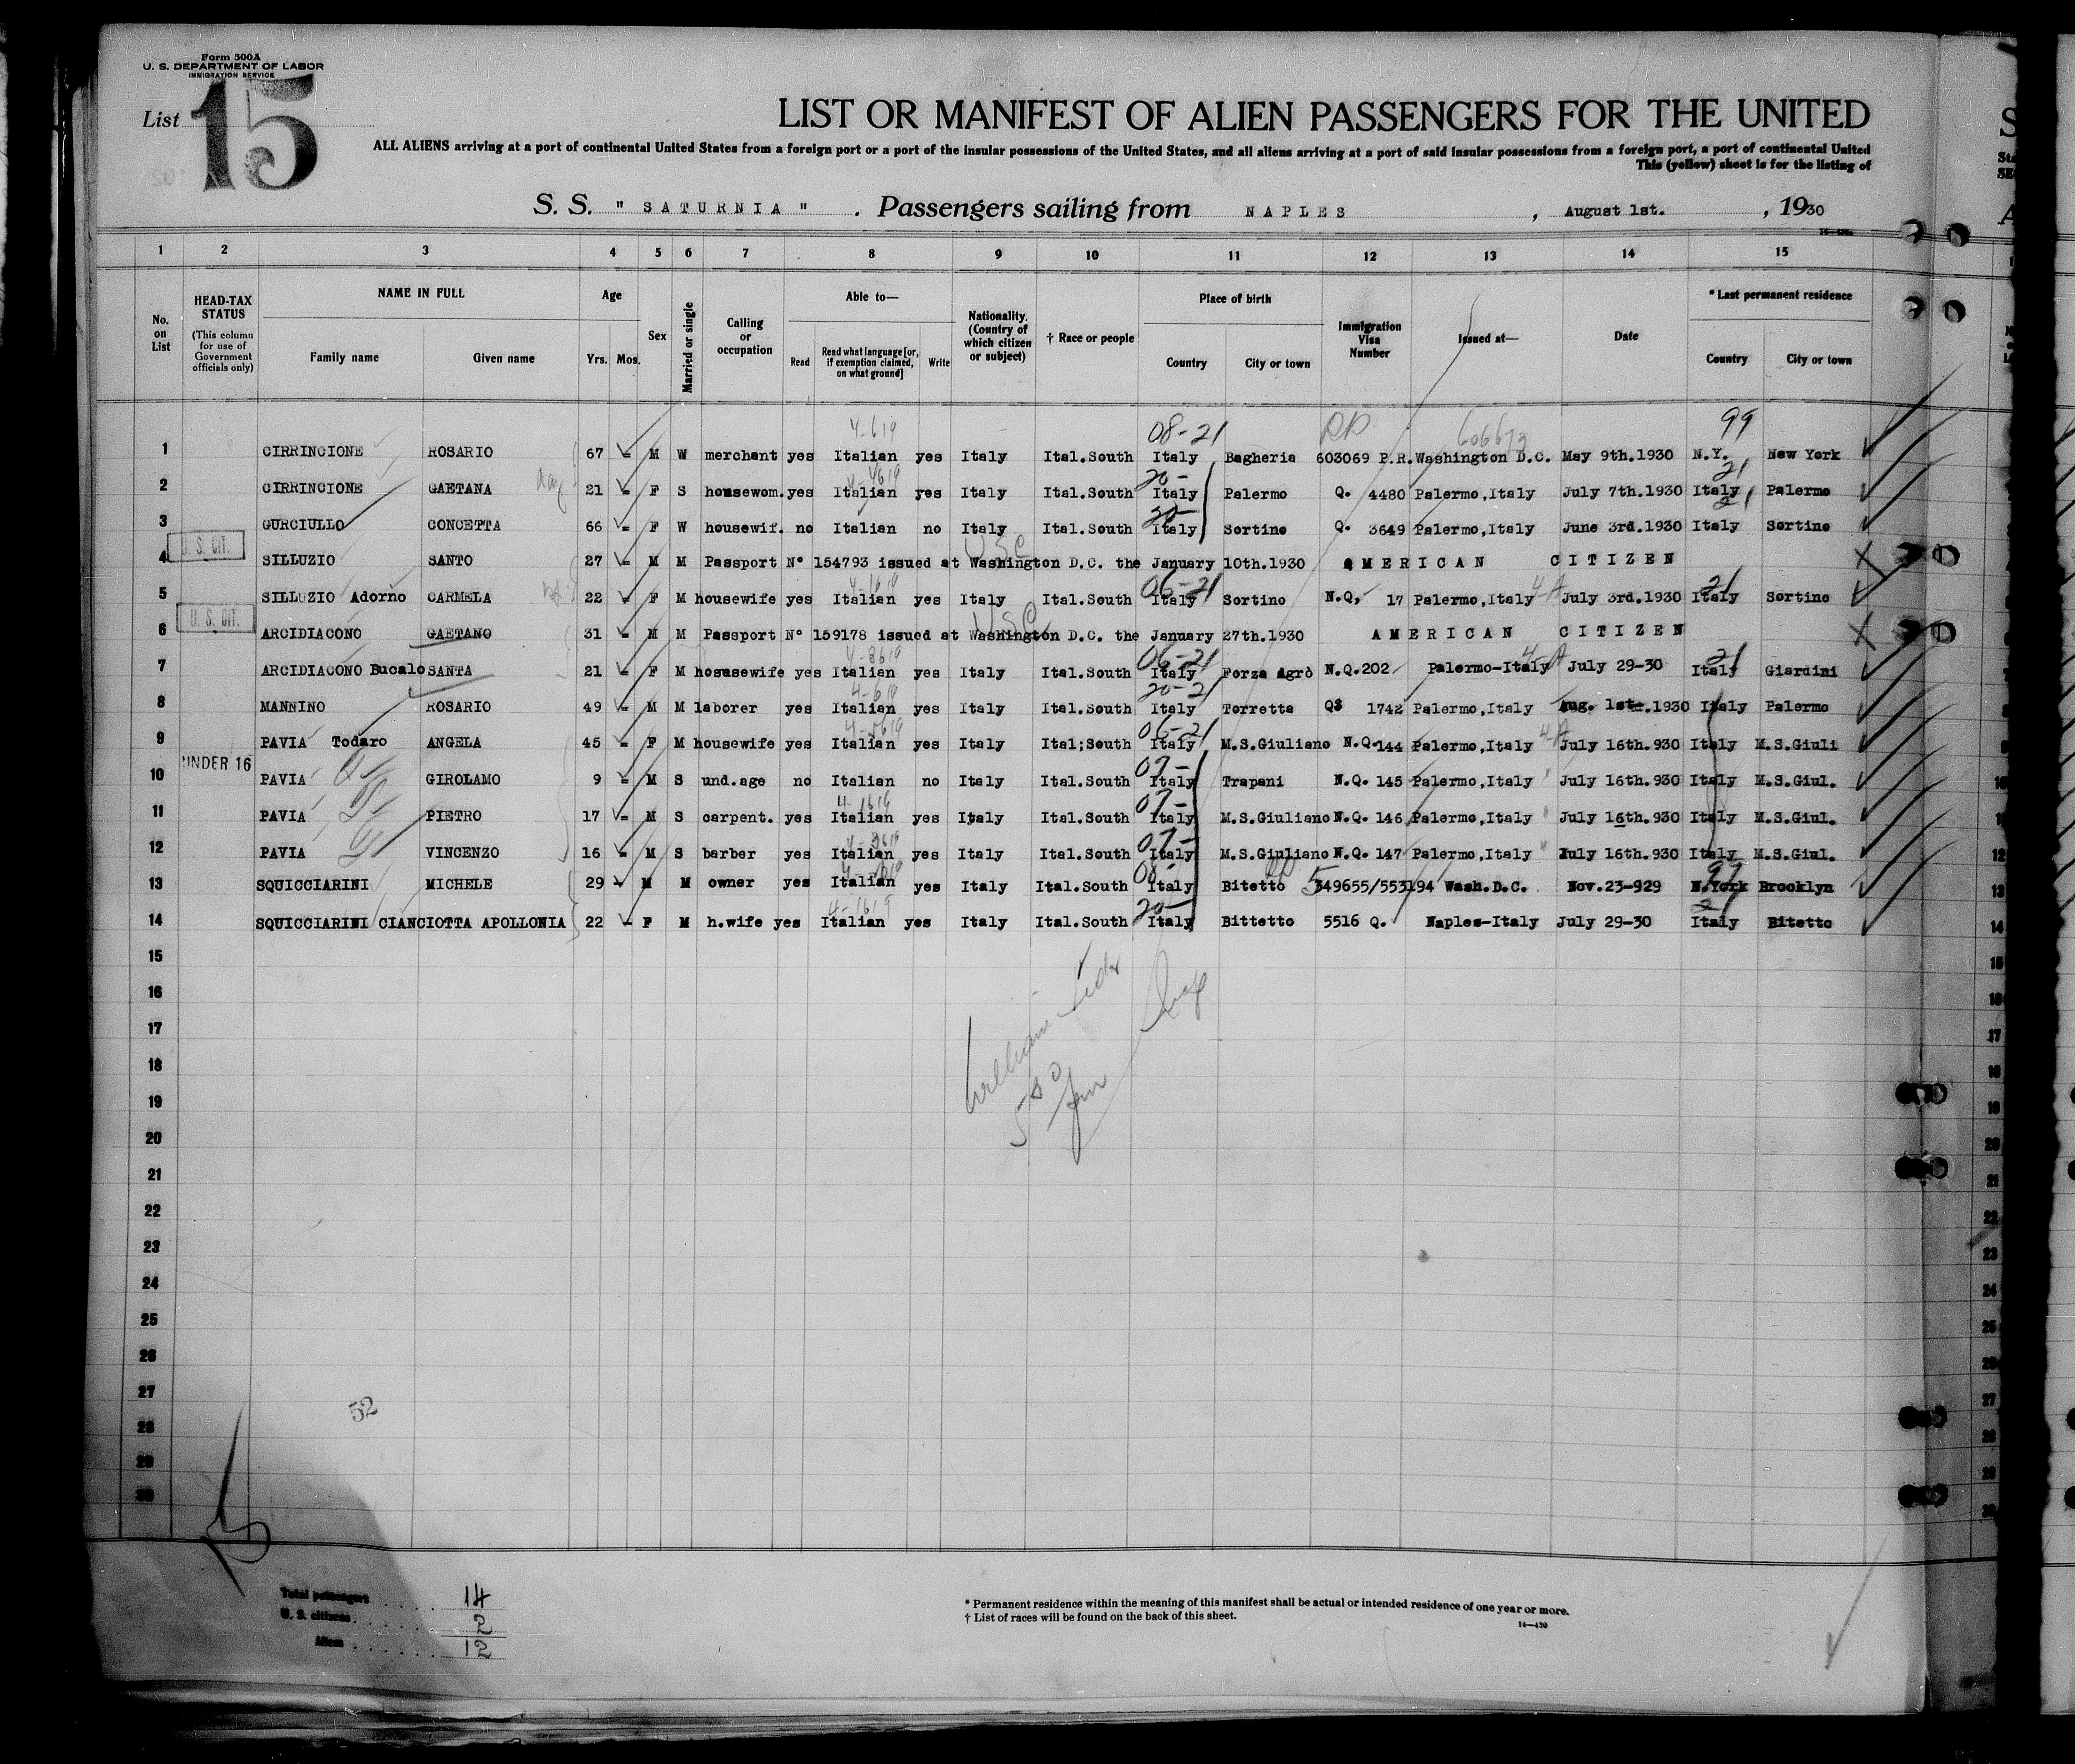 Form 500A
U. S. DEPARTMENT OF LABOR
IMMIGRATION SERVICE
List 15
LIST OR MANIFEST OF ALIEN PASSENGERS FOR THE UNITED
ALL ALIENS arriving at a port of continental United States from a foreign port or a port of the insular possessions of the United States, and all aliens arriving at a port of said insular possessions from a foreign port, a port of continental United
This (yellow) sheet is for the listing of
S. S. " SATURNIA " . Passengers sailing from NAPLES , August 1st. , 1930
1 2 3 4 5 6 7 8 9 10 11 12 13 14 15
No. on List
HEAD-TAX STATUS (This column for use of Government officials only)
NAME IN FULL Family name Given name
Age Yrs. Mos.
Sex
Married or single
Calling or occupation
Able to— Read Read what language [or, if exemption claimed, on what ground] Write
Nationality. (Country of which citizen or subject)
† Race or people
Place of birth Country City or town
Immigration Visa Number
Issued at—
Date
* Last permanent residence Country City or town
4-619 08-21 606673 99
1 CIRRINCIONE ROSARIO 67 - M W merchant yes Italian yes Italy Ital.South Italy Bagheria 603069 P.R. Washington D.C. May 9th.1930 N.Y. New York
20- 21
2 CIRRINCIONE GAETANA 21 - F S housewom. yes Italian yes Italy Ital.South Italy Palermo Q. 4480 Palermo,Italy July 7th.1930 Italy Palermo
20- 21
3 GURCIULLO CONCETTA 66 - F W housewif. no Italian no Italy Ital.South Italy Sortino Q. 3649 Palermo,Italy June 3rd.1930 Italy Sortino
U. S. CIT. USC
4 SILLUZIO SANTO 27 - M M Passport N° 154793 issued at Washington D.C. the January 10th.1930 AMERICAN CITIZEN
06-21 21
5 SILLUZIO Adorno CARMELA 22 - F M housewife yes Italian yes Italy Ital.South Italy Sortino N.Q. 17 Palermo,Italy July 3rd.1930 Italy Sortino
U. S. CIT. USC
6 ARCIDIACONO GAETANO 31 - M M Passport N° 159178 issued at Washington D.C. the January 27th.1930 AMERICAN CITIZEN
06-21 21
7 ARCIDIACONO Bucalo SANTA 21 - F M hosusewife yes Italian yes Italy Ital.South Italy Forza Agrò N.Q.202 Palermo-Italy July 29-30 Italy Giardini
4-619 20-21
8 MANNINO ROSARIO 49 - M M laborer yes Italian yes Italy Ital.South Italy Torretta 1742 Palermo,Italy Aug. 1st.1930 Italy Palermo
06-21
9 PAVIA Todaro ANGELA 45 - F M housewife yes Italian yes Italy Ital;South Italy M.S.Giuliano N.Q.144 Palermo,Italy July 16th.930 Italy M.S.Giuli
UNDER 16 07-
10 PAVIA GIROLAMO 9 - M S und.age no Italian no Italy Ital.South Italy Trapani N.Q. 145 Palermo,Italy July 16th.930 Italy M.S.Giul.
4-1619 07-
11 PAVIA PIETRO 17 - M S carpent. yes Italian yes Italy Ital.South Italy M.S.Giuliano N.Q. 146 Palermo,Italy July 16th.930 Italy M.S.Giul.
07-
12 PAVIA VINCENZO 16 - M S barber yes Italian yes Italy Ital.South Italy M.S.Giuliano N.Q. 147 Palermo,Italy July 16th.930 Italy M.S.Giul.
08-
13 SQUICCIARINI MICHELE 29 - M M owner yes Italian yes Italy Ital.South Italy Bitetto 549655/553194 Wash.D.C. Nov.23-929 N.York Brooklyn
4-1619 20- 21
14 SQUICCIARINI CIANCIOTTA APOLLONIA 22 - F M h.wife yes Italian yes Italy Ital.South Italy Bittetto 5516 Q. Naples-Italy July 29-30 Italy Bitetto
15
16
17
18
19
20
21
22
23
24
25
26
27
28
29
30
William
52
15
Total passengers 14
U. S. citizens 2
Aliens 12
* Permanent residence within the meaning of this manifest shall be actual or intended residence of one year or more.
† List of races will be found on the back of this sheet.
14—430